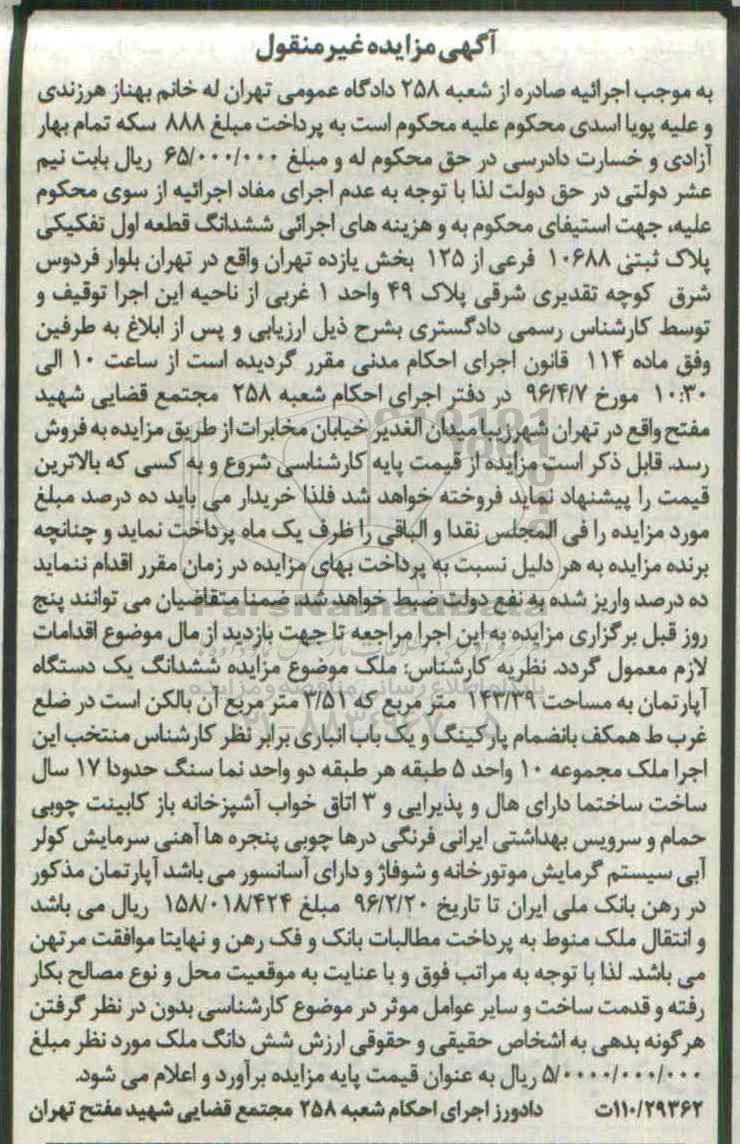 آگهی مزایده غیر منقول
به موجب اجرائیه صادره از شعبه ۲۵۸ دادگاه عمومی تهران له خانم بهناز هرزندی
و علیه پویا اسدی محکوم علیه محکوم است به پرداخت مبلغ ۸۸۸ سکه تمام بهار
آزادی و خسارت دادرسی در حق محکوم له و مبلغ ۶۵/۰۰۰/۰۰۰ ریال بابت نیم
عشر دولتی در حق دولت لذا با توجه به عدم اجرای مفاد اجرائیه از سوی محکوم
علیه، جهت استیفای محکوم به و هزینه های اجرائی ششدانگ قطعه اول تفکیکی
پلاک ثبتی ۱۰۶۸۸ فرعی از ۱۲۵ بخش یازده تهران واقع در تهران بلوار فردوس
شرق کوچه تقدیری شرقی پلاک ۴۹ واحد ۱ غربی از ناحیه این اجرا توقیف و
توسط کارشناس رسمی دادگستری بشرح ذیل ارزیابی و پس از ابلاغ به طرفین
وفق ماده ۱۱۴ قانون اجرای احکام مدنی مقرر گردیده است از ساعت ۱۰ الی
۱۰:۳۰ مورخ ۹۶/۴/۷ در دفتر اجرای احکام شعبه ۲۵۸ مجتمع قضایی شهید
مفتح واقع در تهران شهرزیبا میدان الغدیر خیابان مخابرات از طریق مزایده به فروش
رسد. قابل ذکر است مزایده از قیمت پایه کارشناسی شروع و به کسی که بالاترین
قیمت را پیشنهاد نماید فروخته خواهد شد فلذا خریدار می باید ده درصد مبلغ
مورد مزایده را فی المجلس نقدا و الباقی را ظرف یک ماه پرداخت نماید و چنانچه
برنده مزایده به هر دلیل نسبت به پرداخت بهای مزایده در زمان مقرر اقدام ننماید
ده درصد واریز شده به نفع دولت ضبط خواهد شد. ضمنا متقاضیان می توانند پنج
روز قبل برگزاری مزایده به این اجرا مراجعه تا جهت بازدید از مال موضوع اقدامات
لازم معمول گردد. نظریه کارشناس: ملک موضوع مزایده ششدانگ یک دستگاه
آپارتمان به مساحت ۱۴۳/۳۹ متر مربع که ۳/۵۱ متر مربع آن بالکن است در ضلع
غرب ط همکف بانضمام پارکینگ و یک باب انباری برابر نظر کارشناس منتخب این
اجرا ملک مجموعه ۱۰ واحد ۵ طبقه هر طبقه دو واحد نما سنگ حدودا ۱۷ سال
ساخت ساختما دارای هال و پذیرایی و ۳ اتاق خواب آشپزخانه باز کابینت چوبی
حمام و سرویس بهداشتی ایرانی فرنگی درها چوبی پنجره ها آهنی سرمایش کولر
آبی سیستم گرمایش موتورخانه و شوفاژ و دارای آسانسور می باشد آپارتمان مذکور
در رهن بانک ملی ایران تا تاریخ ۹۶/۲/۲۰ مبلغ ۱۵۸/۰۱۸/۴۲۴ ریال می باشد
و انتقال ملک منوط به پرداخت مطالبات بانک و فک رهن و نهایتا موافقت مرتهن
می باشد. لذا با توجه به مراتب فوق و با عنایت به موقعیت محل و نوع مصالح بکار
رفته و قدمت ساخت و سایر عوامل موثر در موضوع کارشناسی بدون در نظر گرفتن
هر گونه بدهی به اشخاص حقیقی و حقوقی ارزش شش دانگ ملک مورد نظر مبلغ
۵/۰۰۰۰/۰۰۰/۰۰۰ ریال به عنوان قیمت پایه مزایده برآورد و اعلام می شود.
۱۱۰/۲۹۳۶۲ت دادورز اجرای احکام شعبه ۲۵۸ مجتمع قضایی شهید مفتح تهران